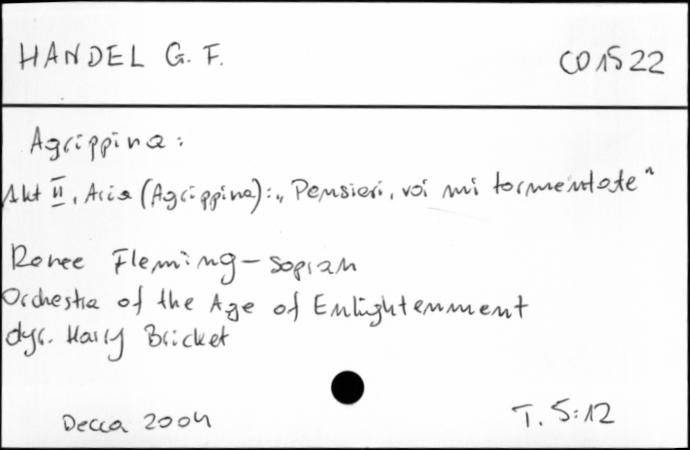 HANDEL G. F.
CD 1522
Agrippina:
Akt II, Aria (Agrippina): „Pensieri, voi mi tormentate"
Renee Fleming - sopran
Orchestra of the Age of Enlightenment
dyr. Harry Bricket
Decca 2004
T. 5:12